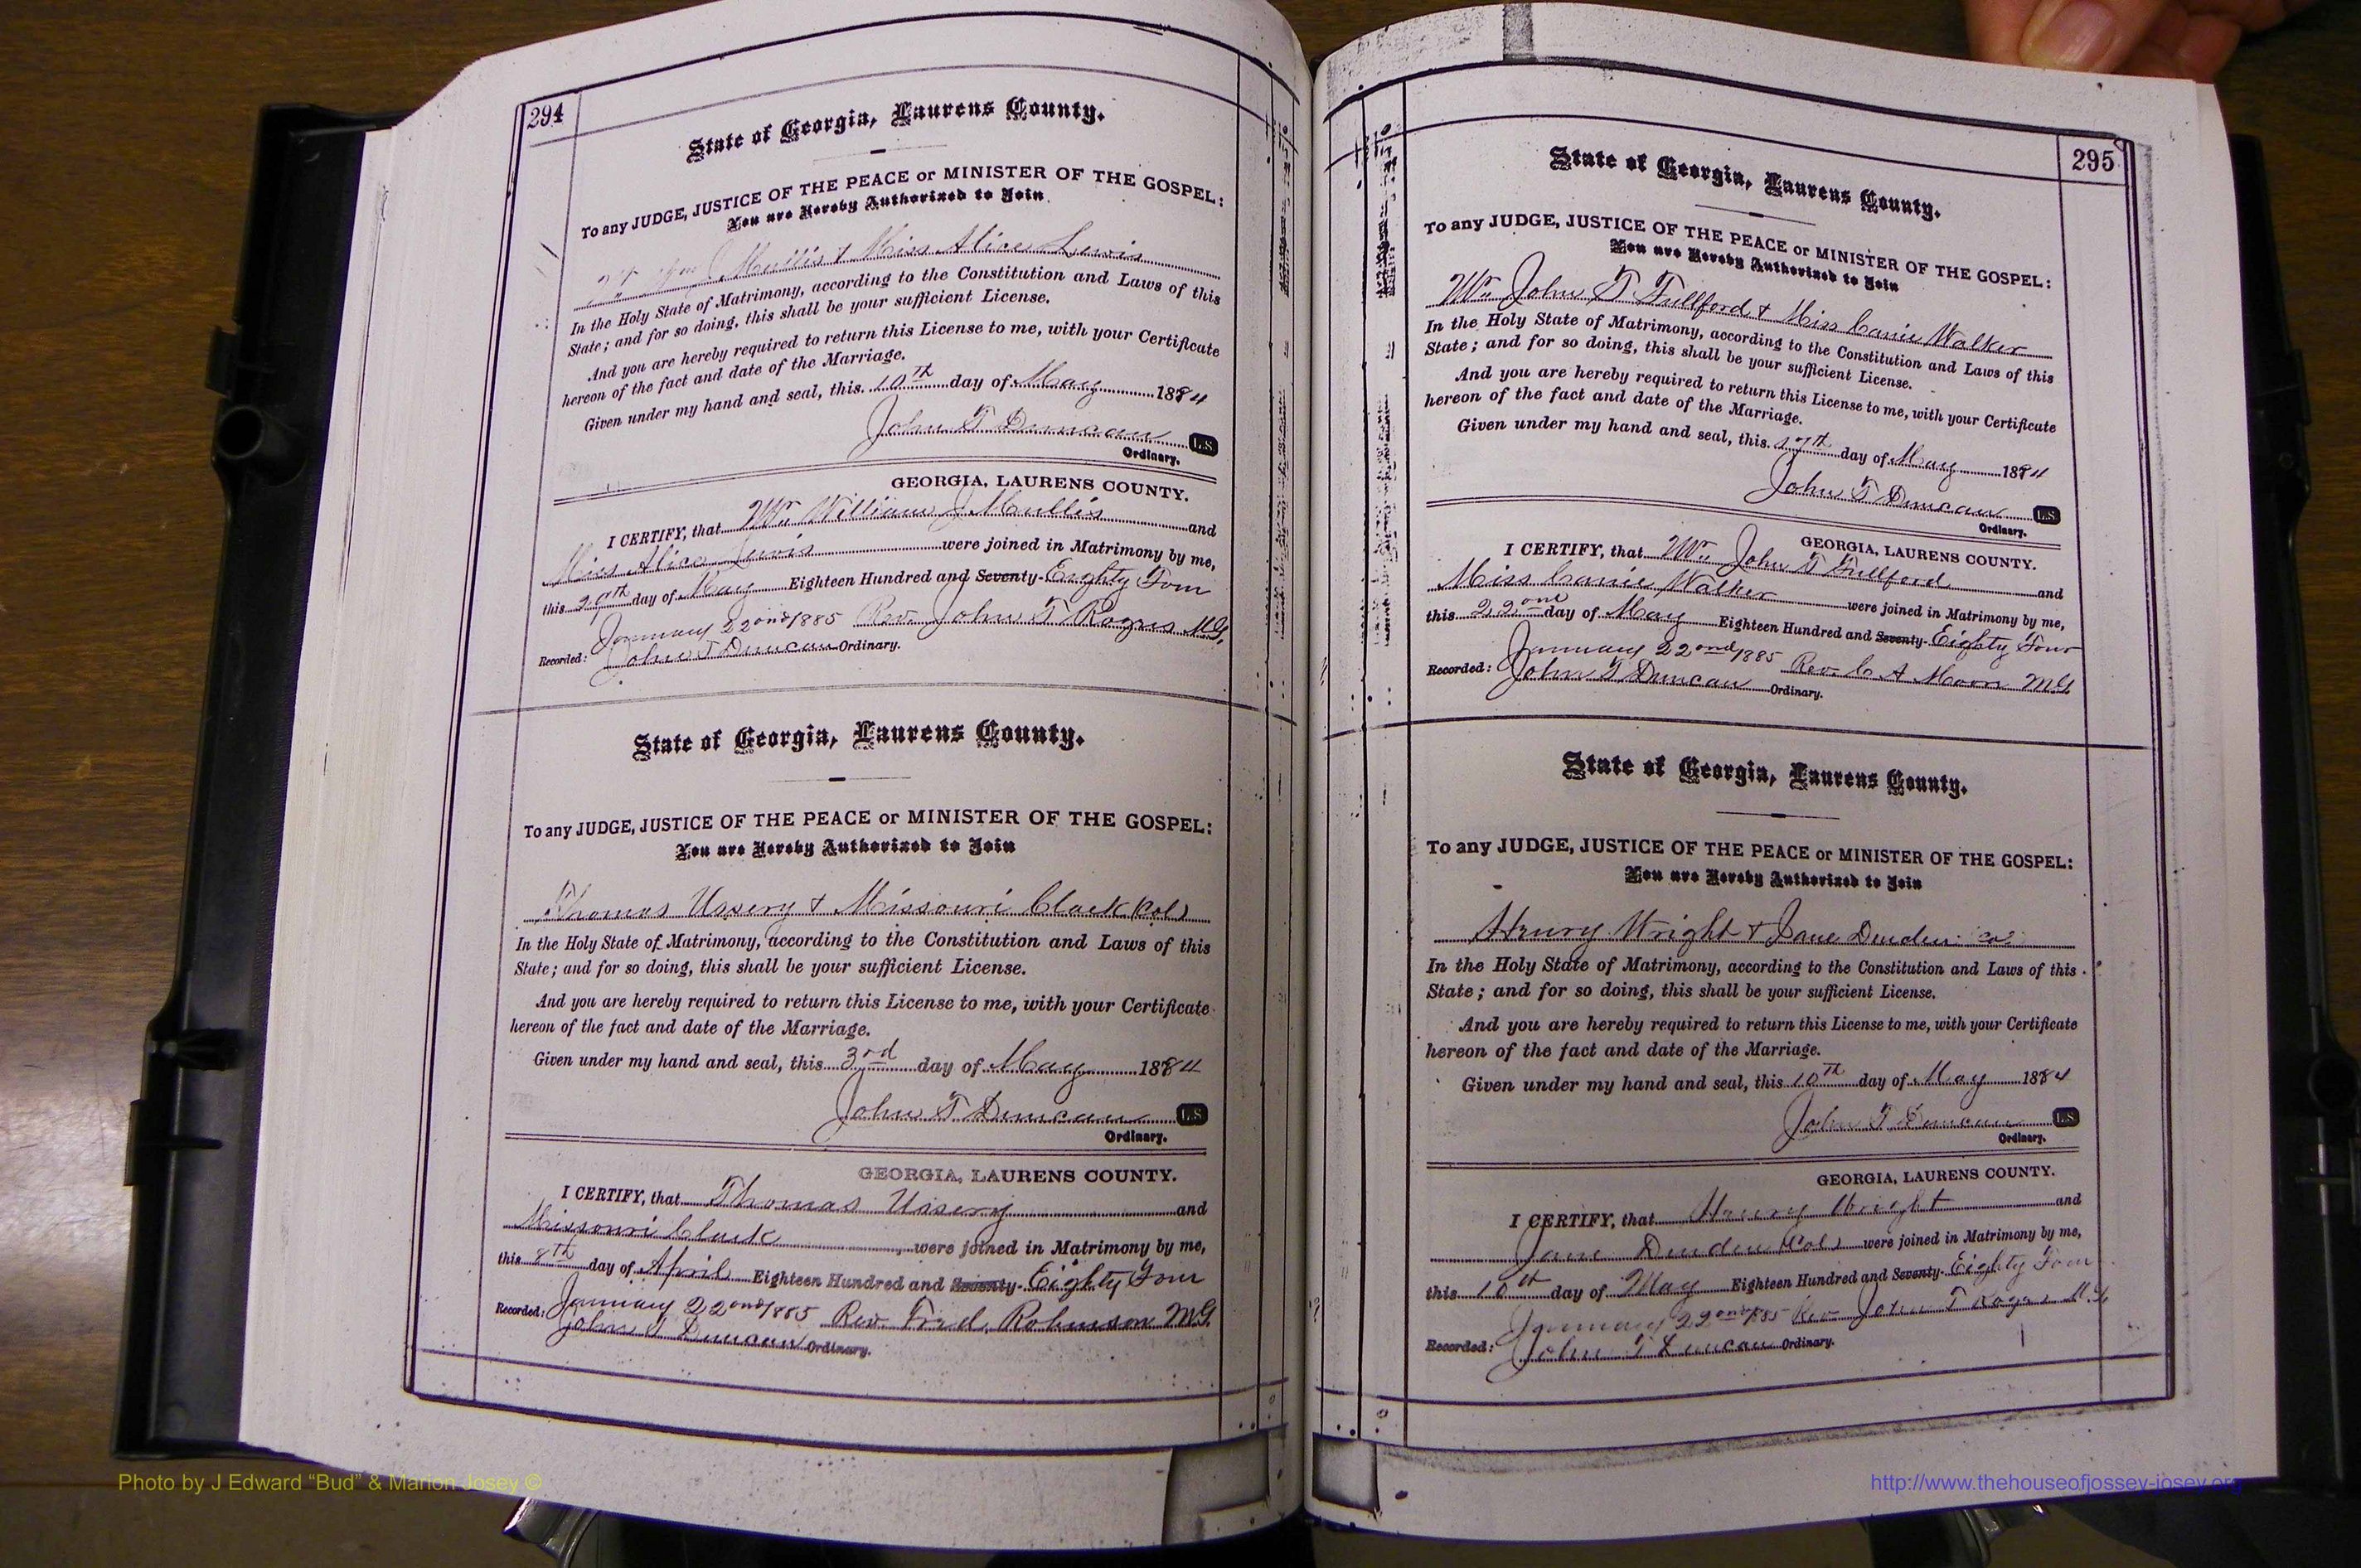 294
State of Georgia, Laurens County.
To any JUDGE, JUSTICE OF THE PEACE or MINISTER OF THE GOSPEL:
You are Hereby Authorized to Join
Mullis & Miss Alice Lewis
In the Holy State of Matrimony, according to the Constitution and Laws of this
State; and for so doing, this shall be your sufficient License.
And you are hereby required to return this License to me, with your Certificate
hereon of the fact and date of the Marriage.
Given under my hand and seal, this 10th day of May 1884
John T Duncan L.S
Ordinary.
GEORGIA, LAURENS COUNTY.
I CERTIFY, that Mr William J Mullis and
Miss Alice Lewis were joined in Matrimony by me,
this 29th day of May Eighteen Hundred and Seventy- Eighty Four
January 22nd 1885 Rev. John T Rogers M.G.
Recorded: John T Duncan Ordinary.
State of Georgia, Laurens County.
To any JUDGE, JUSTICE OF THE PEACE or MINISTER OF THE GOSPEL:
You are Hereby Authorized to Join
Thomas Ussery & Missouri Clack (Col)
In the Holy State of Matrimony, according to the Constitution and Laws of this
State; and for so doing, this shall be your sufficient License.
And you are hereby required to return this License to me, with your Certificate
hereon of the fact and date of the Marriage.
Given under my hand and seal, this 3rd day of May 1884
John T Duncan L.S
Ordinary.
GEORGIA, LAURENS COUNTY.
I CERTIFY, that Thomas Ussery and
Missouri Clack were joined in Matrimony by me,
this 8th day of April Eighteen Hundred and Seventy- Eighty Four
January 22nd 1885 Rev. Fred. Robinson M.G.
Recorded: John T Duncan Ordinary.
295
State of Georgia, Laurens County.
To any JUDGE, JUSTICE OF THE PEACE or MINISTER OF THE GOSPEL:
You are Hereby Authorized to Join
Mr John T Fullford & Miss Canie Walker
In the Holy State of Matrimony, according to the Constitution and Laws of this
State; and for so doing, this shall be your sufficient License.
And you are hereby required to return this License to me, with your Certificate
hereon of the fact and date of the Marriage.
Given under my hand and seal, this 17th day of May 1884
John T Duncan L.S
Ordinary.
GEORGIA, LAURENS COUNTY.
I CERTIFY, that Mr John T Fullford and
Miss Canie Walker were joined in Matrimony by me,
this 22nd day of May Eighteen Hundred and Seventy- Eighty Four
January 22nd 1885 Rev C A Moon M.G.
Recorded: John T Duncan Ordinary.
State of Georgia, Laurens County.
To any JUDGE, JUSTICE OF THE PEACE or MINISTER OF THE GOSPEL:
You are Hereby Authorized to Join
Henry Wright & Jane Duden Col
In the Holy State of Matrimony, according to the Constitution and Laws of this
State; and for so doing, this shall be your sufficient License.
And you are hereby required to return this License to me, with your Certificate
hereon of the fact and date of the Marriage.
Given under my hand and seal, this 10th day of May 1884
John T Duncan L.S
Ordinary.
GEORGIA, LAURENS COUNTY.
I CERTIFY, that Henry Wright and
Jane Duden (Col) were joined in Matrimony by me,
this 10th day of May Eighteen Hundred and Seventy- Eighty Four
January 22nd 1885 Rev John T Rogers M.G.
Recorded: John T Duncan Ordinary.
Photo by J Edward “Bud” & Marion Josey ©
http://www.thehouseofjossey-josey.org